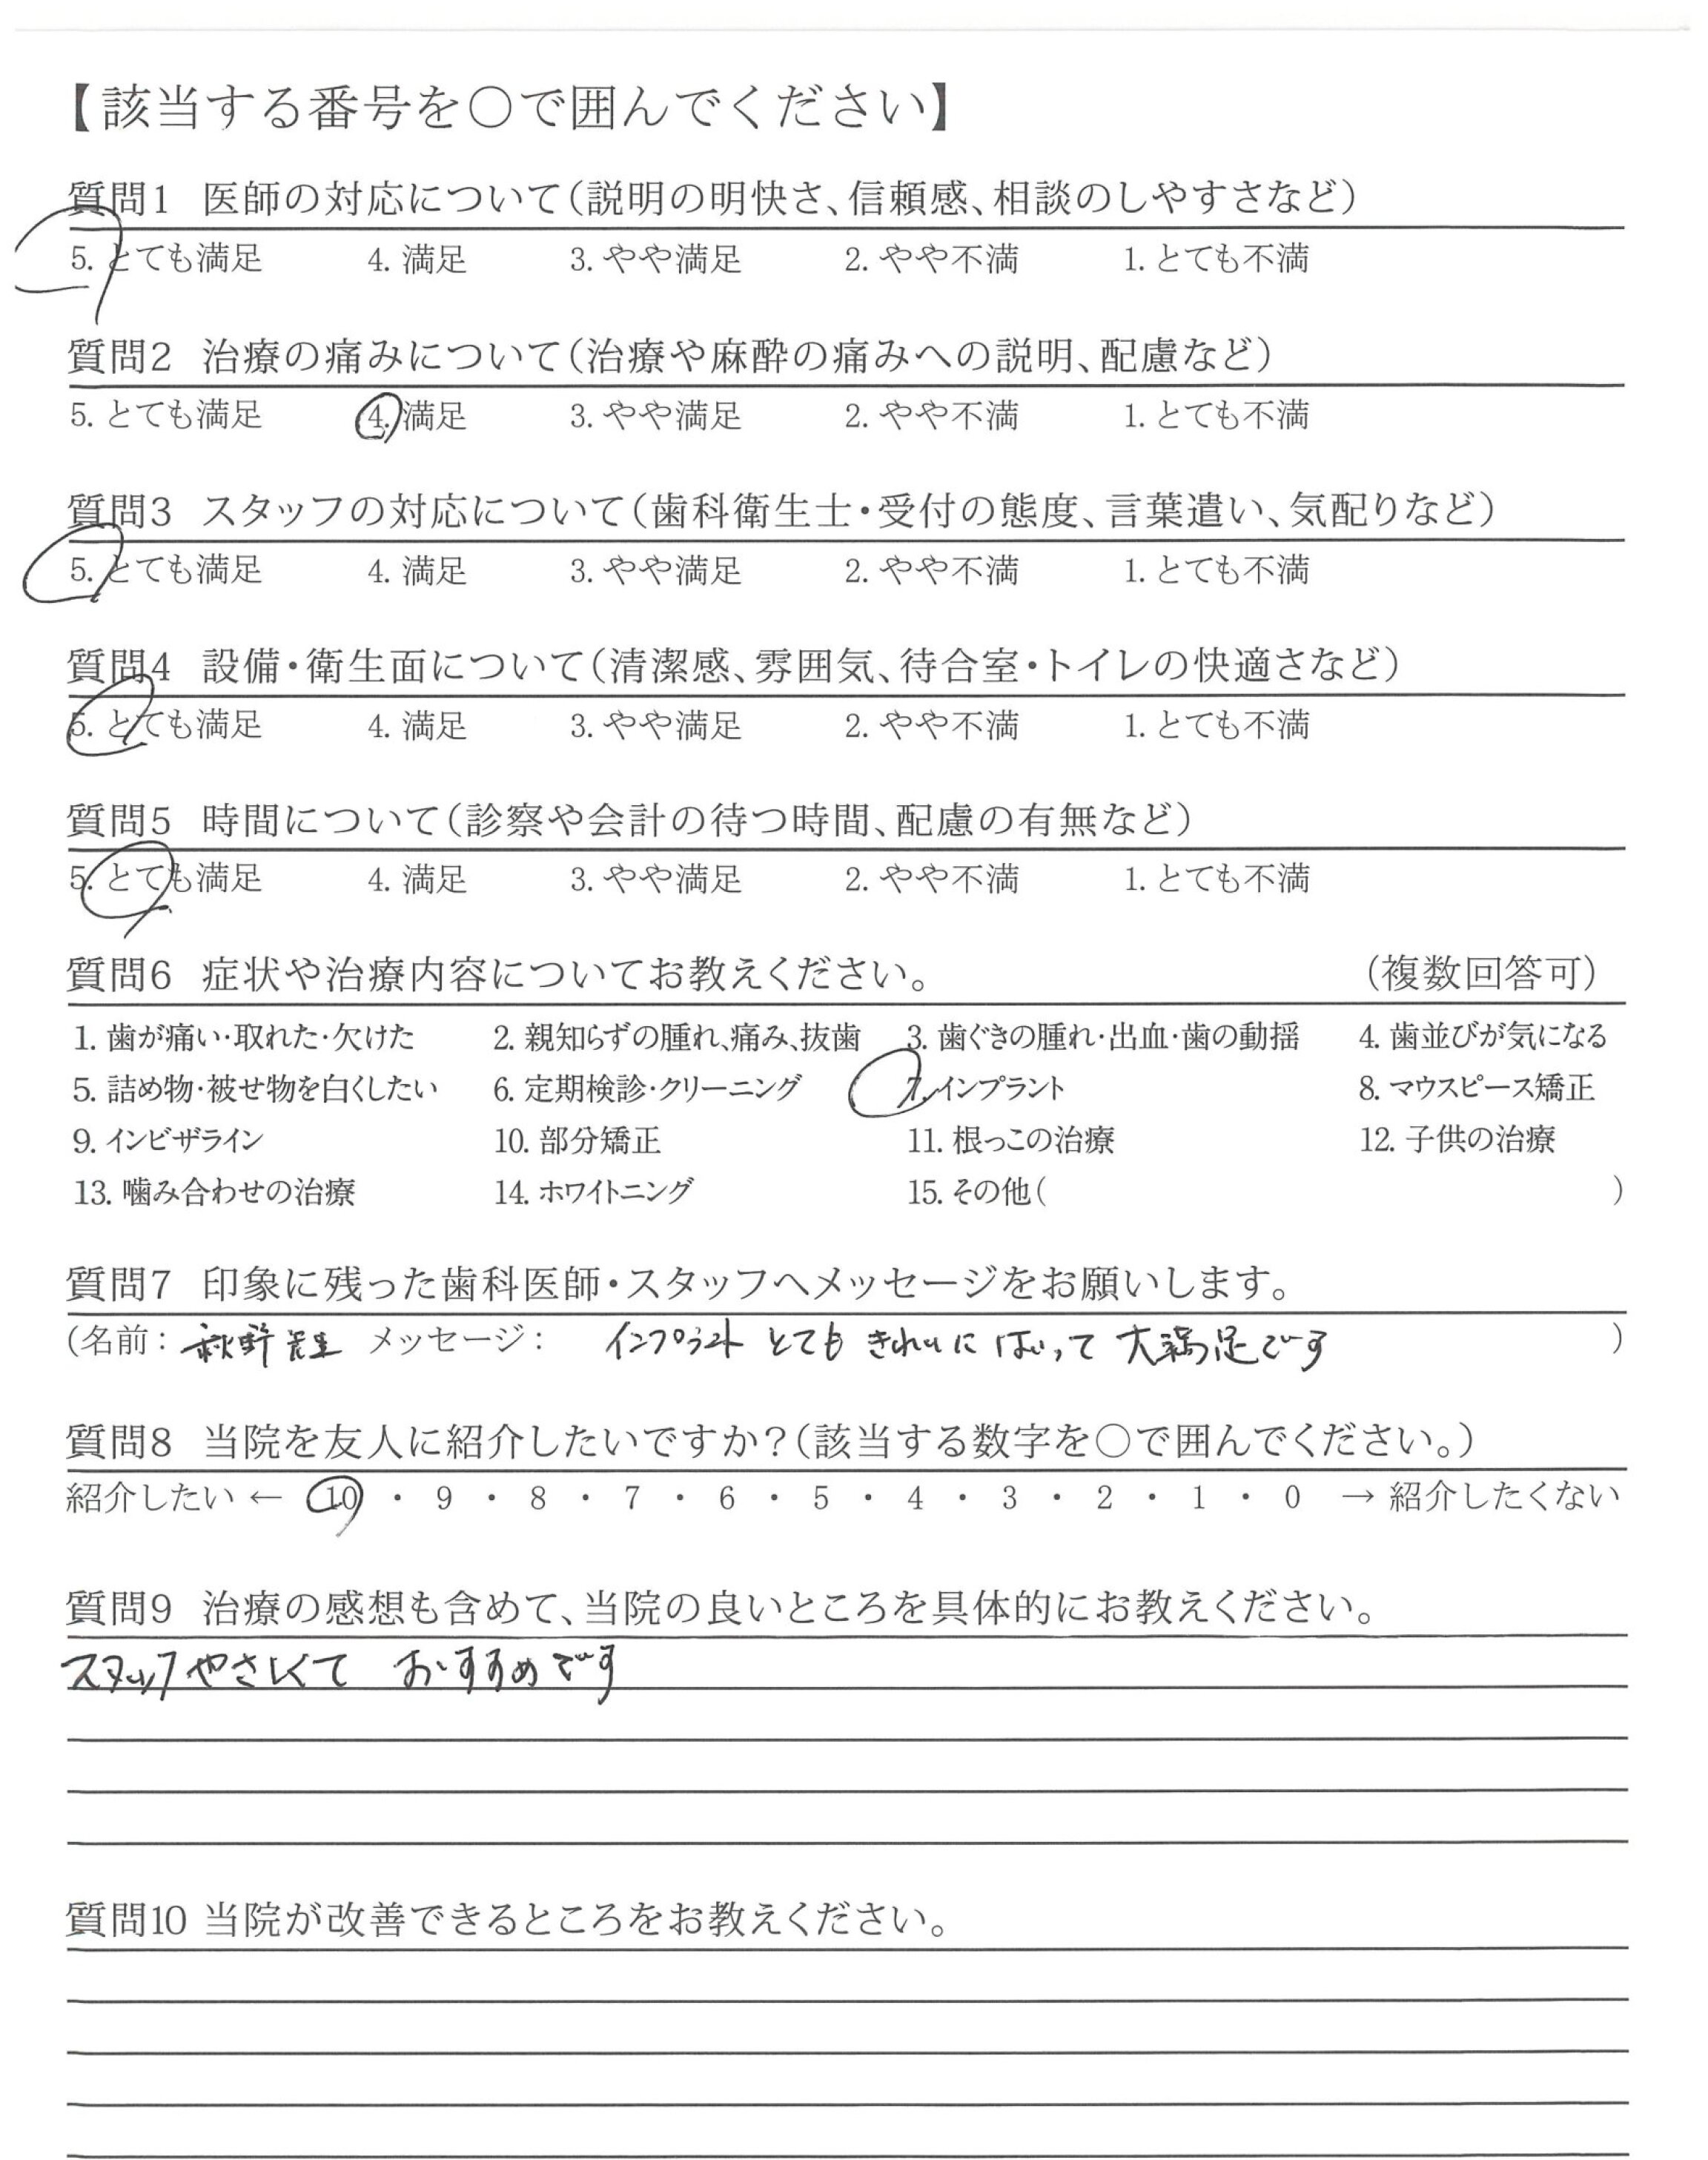 【該当する番号を○で囲んでください】
質問1 医師の対応について(説明の明快さ、信頼感、相談のしやすさなど)
5. とても満足 4. 満足 3. やや満足 2. やや不満 1. とても不満
質問2 治療の痛みについて(治療や麻酔の痛みへの説明、配慮など)
5. とても満足 4. 満足 3. やや満足 2. やや不満 1. とても不満
質問3 スタッフの対応について(歯科衛生士・受付の態度、言葉遣い、気配りなど)
5. とても満足 4. 満足 3. やや満足 2. やや不満 1. とても不満
質問4 設備・衛生面について(清潔感、雰囲気、待合室・トイレの快適さなど)
5. とても満足 4. 満足 3. やや満足 2. やや不満 1. とても不満
質問5 時間について(診察や会計の待つ時間、配慮の有無など)
5. とても満足 4. 満足 3. やや満足 2. やや不満 1. とても不満
質問6 症状や治療内容についてお教えください。 (複数回答可)
1. 歯が痛い・取れた・欠けた 2. 親知らずの腫れ、痛み、抜歯 3. 歯ぐきの腫れ・出血・歯の動揺 4. 歯並びが気になる
5. 詰め物・被せ物を白くしたい 6. 定期検診・クリーニング 7. インプラント 8. マウスピース矯正
9. インビザライン 10. 部分矯正 11. 根っこの治療 12. 子供の治療
13. 噛み合わせの治療 14. ホワイトニング 15. その他( )
質問7 印象に残った歯科医師・スタッフへメッセージをお願いします。
(名前: 秋野先生 メッセージ: インプラント とても きれいに はいって 大満足です )
質問8 当院を友人に紹介したいですか?(該当する数字を○で囲んでください。)
紹介したい ← 10 ・ 9 ・ 8 ・ 7 ・ 6 ・ 5 ・ 4 ・ 3 ・ 2 ・ 1 ・ 0 → 紹介したくない
質問9 治療の感想も含めて、当院の良いところを具体的にお教えください。
スタッフやさしくて おすすめです
質問10 当院が改善できるところをお教えください。